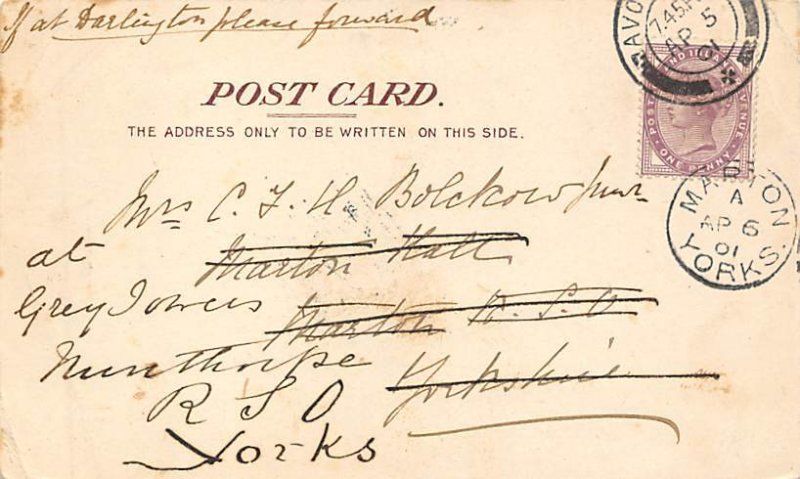 If at Darlington please forward
POST CARD.
THE ADDRESS ONLY TO BE WRITTEN ON THIS SIDE.
Mrs C. F. H. Bolckow Junr
at Marton Hall
Grey Towers Marton R. S. O
Nunthorpe Yorkshire
R S O
Yorks
AVO
7.45P
AP 5
01
POST
ND IRELA
ENUE
ONE PENNY
MARTON
A
AP 6
01
YORKS.